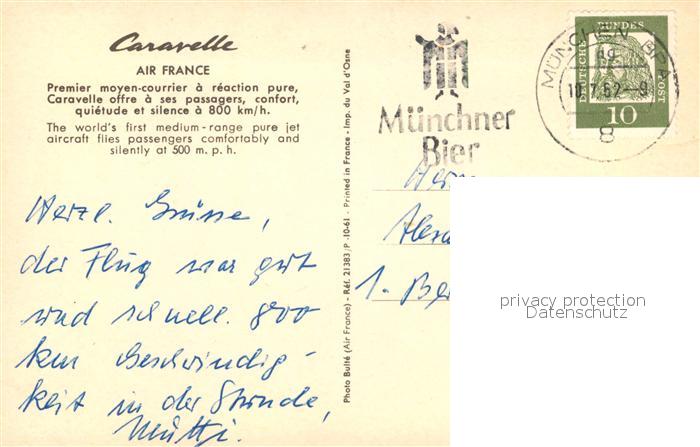 Caravelle
AIR FRANCE
Premier moyen-courrier à réaction pure,
Caravelle offre à ses passagers, confort,
quiétude et silence à 800 km/h.
The world's first medium-range pure jet
aircraft flies passengers comfortably and
silently at 500 m. p. h.
Herzl. Grüsse,
der Flug war gut
und schnell. 800
km Geschwindig-
keit in der Stunde,
Mutti.
Photo Bulté (Air France) - Réf. 21383/P -10-61 - Printed in France - Imp. du Val d'Osne
Münchner
Bier
DEUTSCHE BUNDESPOST
10
MÜNCHEN BPA
10.7.62-9
8
Herrn
1. Ber
privacy protection
Datenschutz